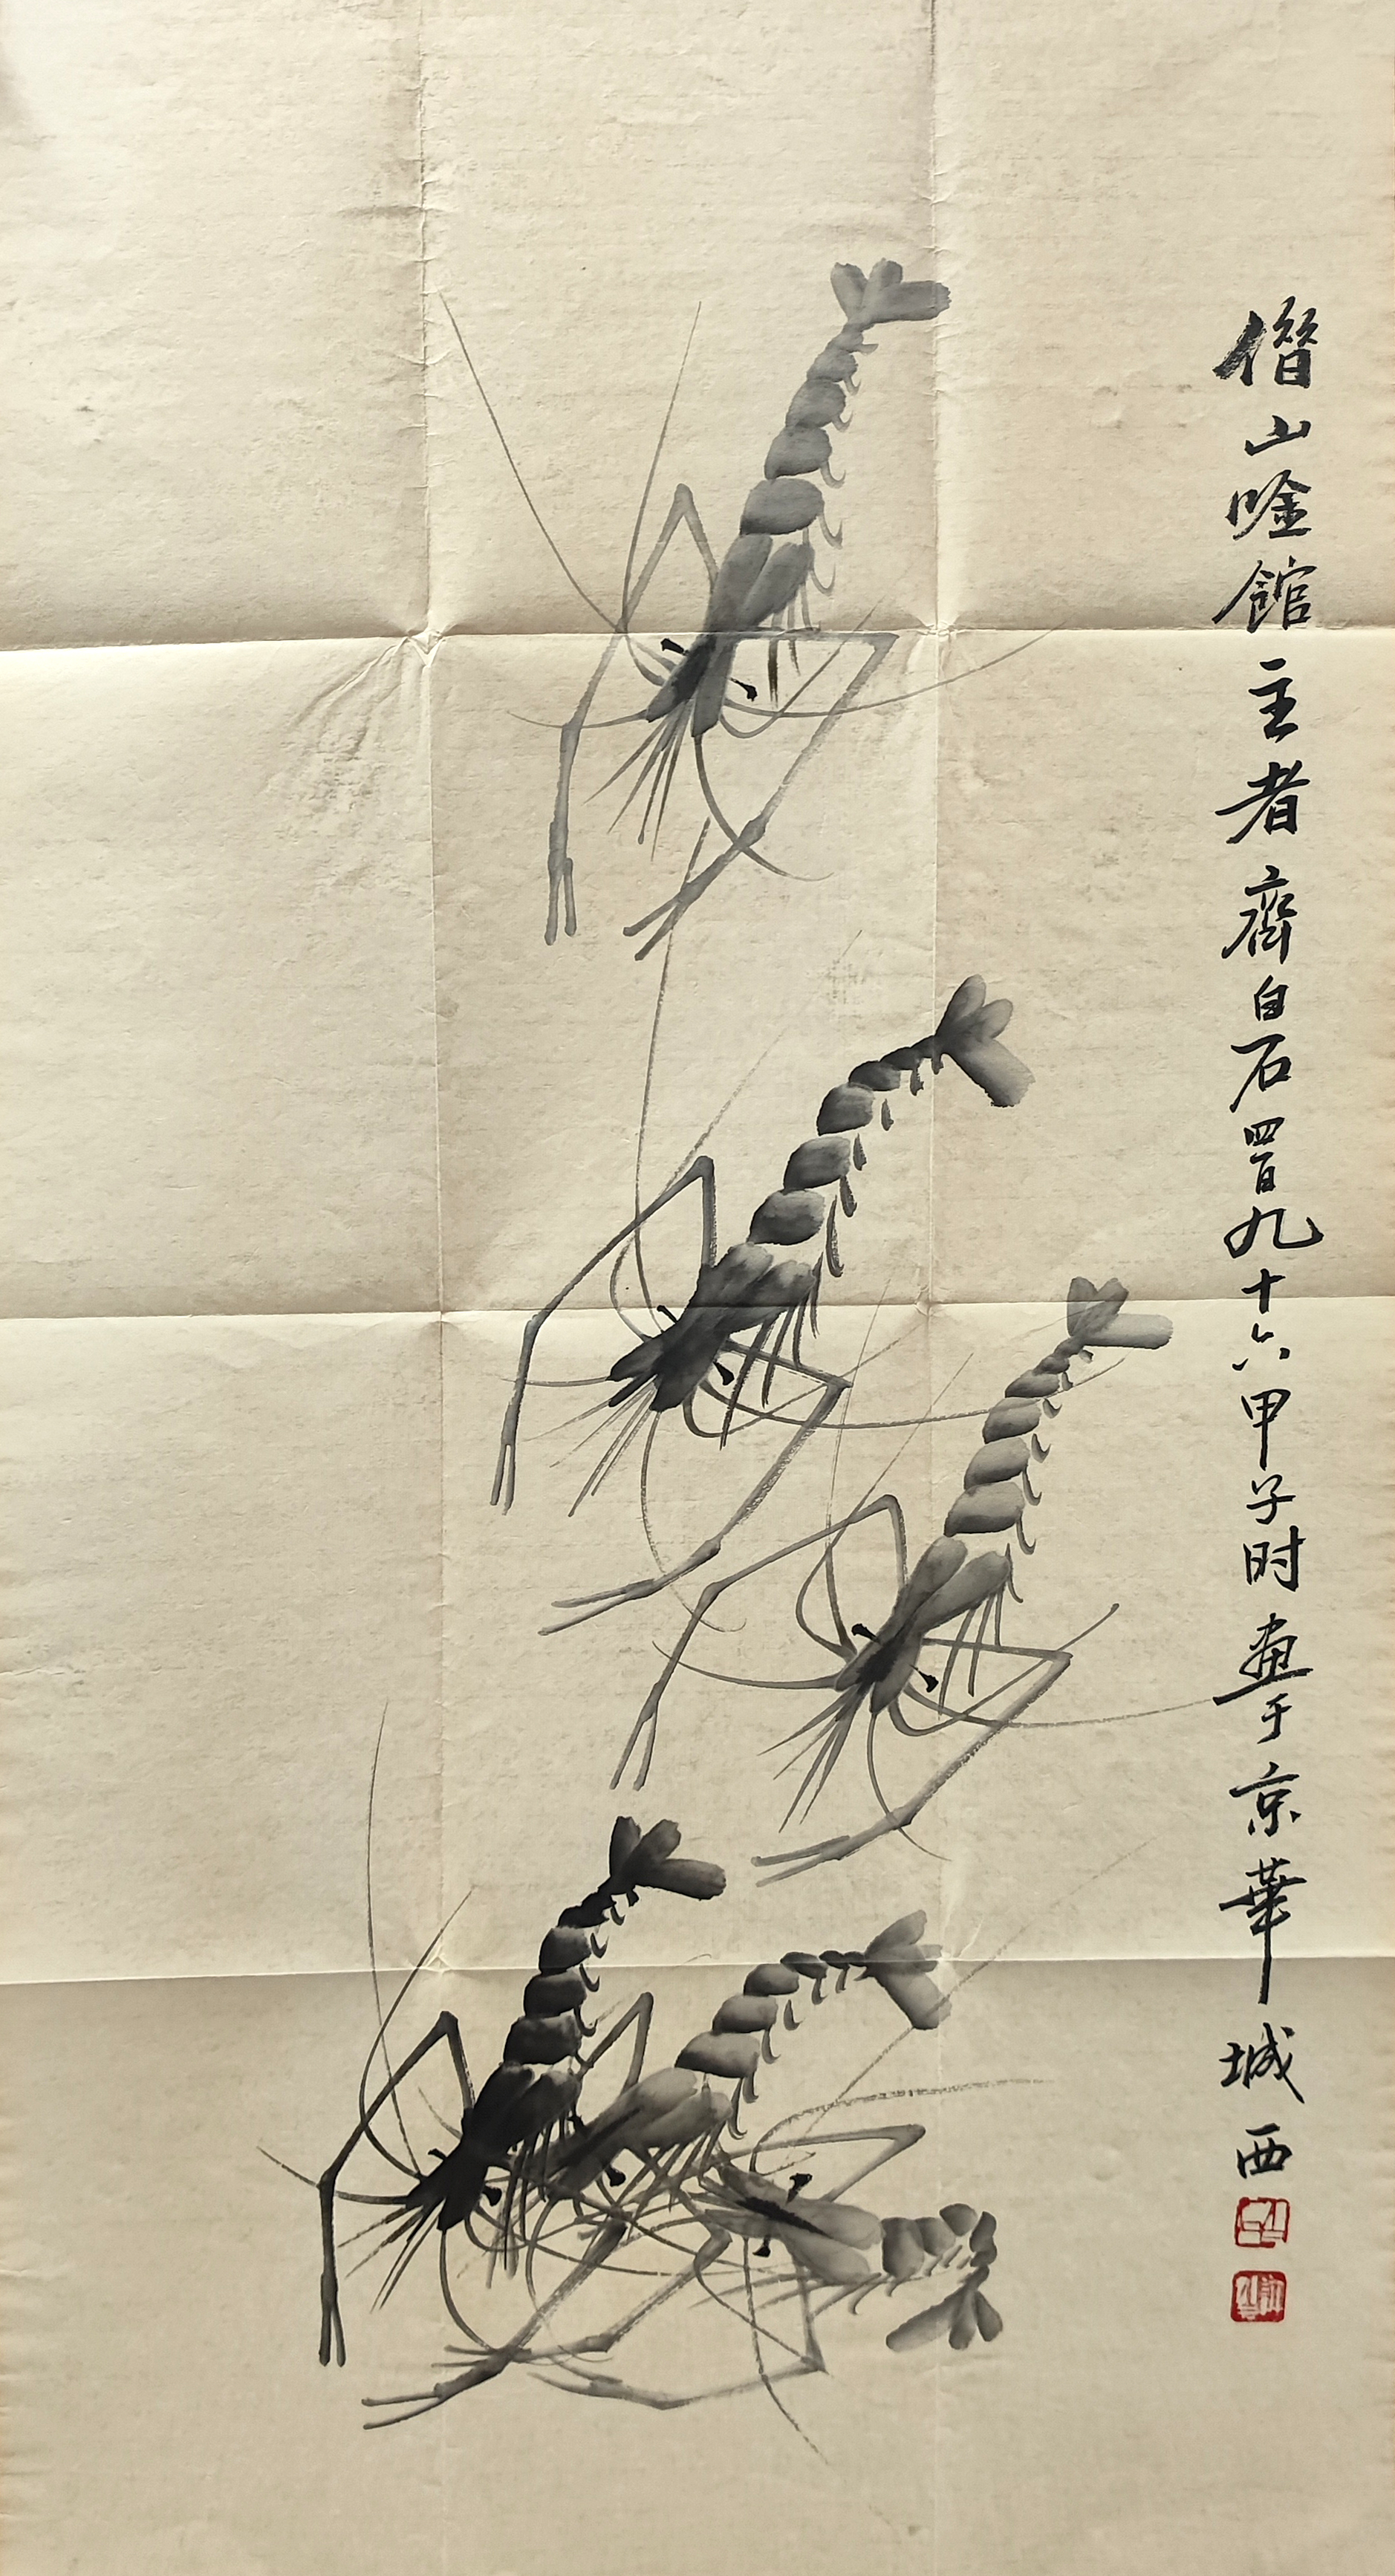 借山唫館主者齊白石四百九十六甲子时畫于京華城西